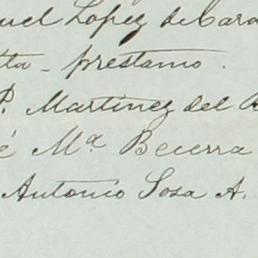 uel Lopez de Cara
ta - prestamo.
P. Martinez del R
é Mª Becerra
Antonio Sosa A.